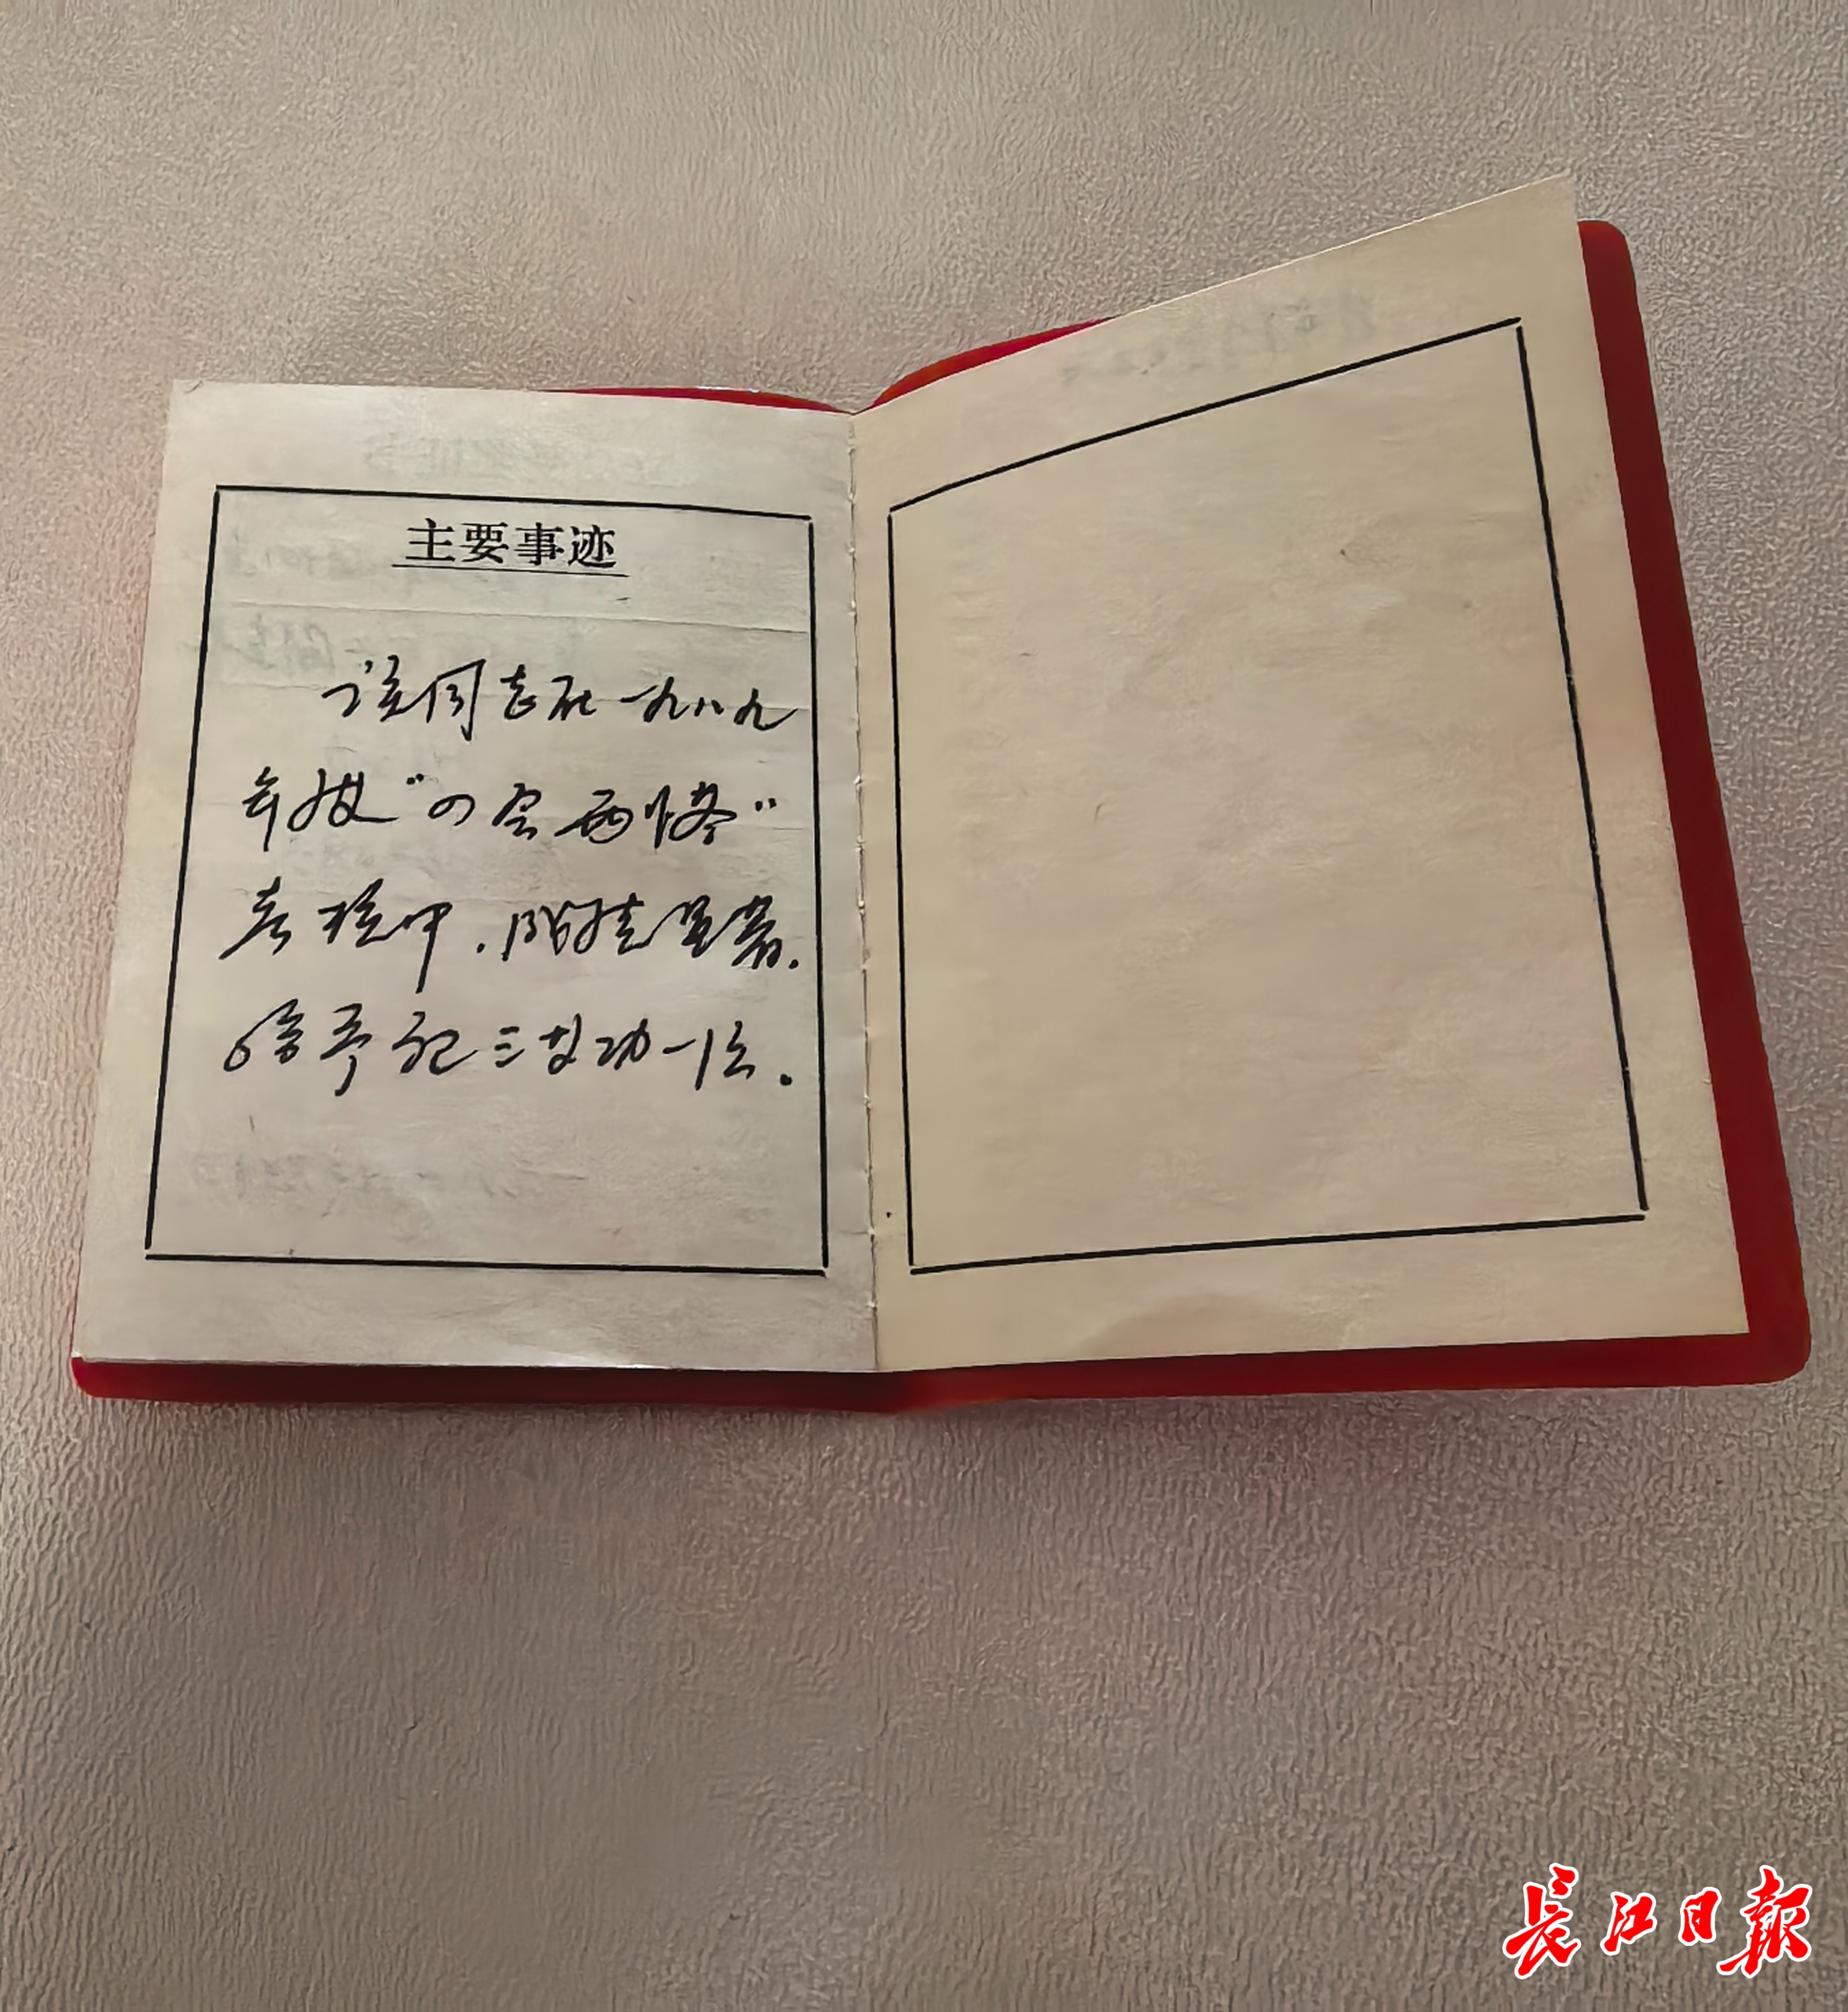 主要事迹
该同志在一九八九
年度“四会两懂”
考核中，成绩显著，
给予记三等功一次。
长江日报